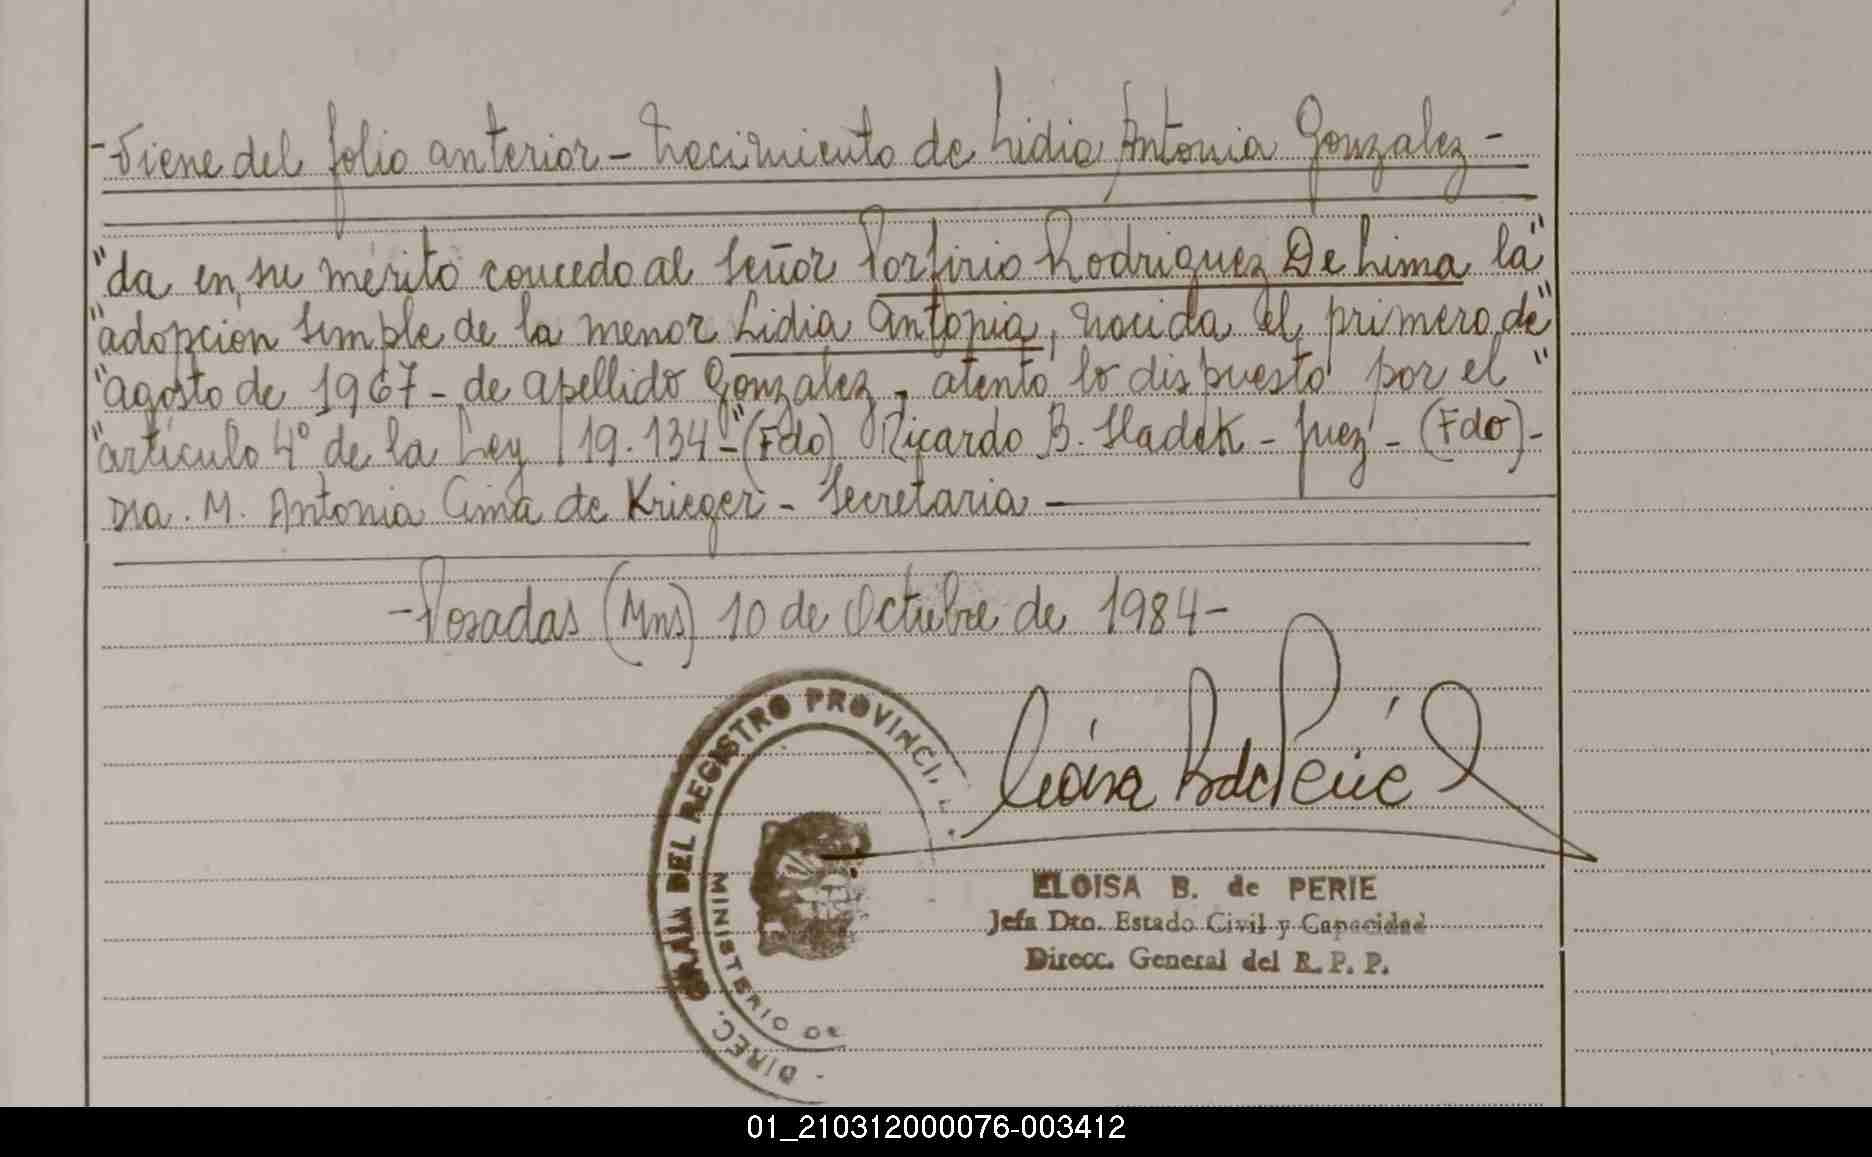 -Viene del folio anterior - Nacimiento de Lidia Antonia Gonzalez -
"da en su mérito concedo al Señor Porfirio Rodriguez De Lima la"
"adopción simple de la menor Lidia Antonia, nacida el primero de"
"agosto de 1967 - de apellido Gonzalez, atento lo dispuesto por el"
"artículo 4° de la Ley 19.134-" (Fdo) Ricardo B. Sladek - Juez - (Fdo)-
Dra. M. Antonia Cima de Krieger - Secretaria -
-Posadas (Mns) 10 de Octubre de 1984-
DIREC. GRAL. DEL REGISTRO PROVINCI
MINISTERIO DE
ELOISA B. de PERIE
Jefa Dto. Estado Civil y Capacidad
Direcc. General del R. P. P.
01_210312000076-003412